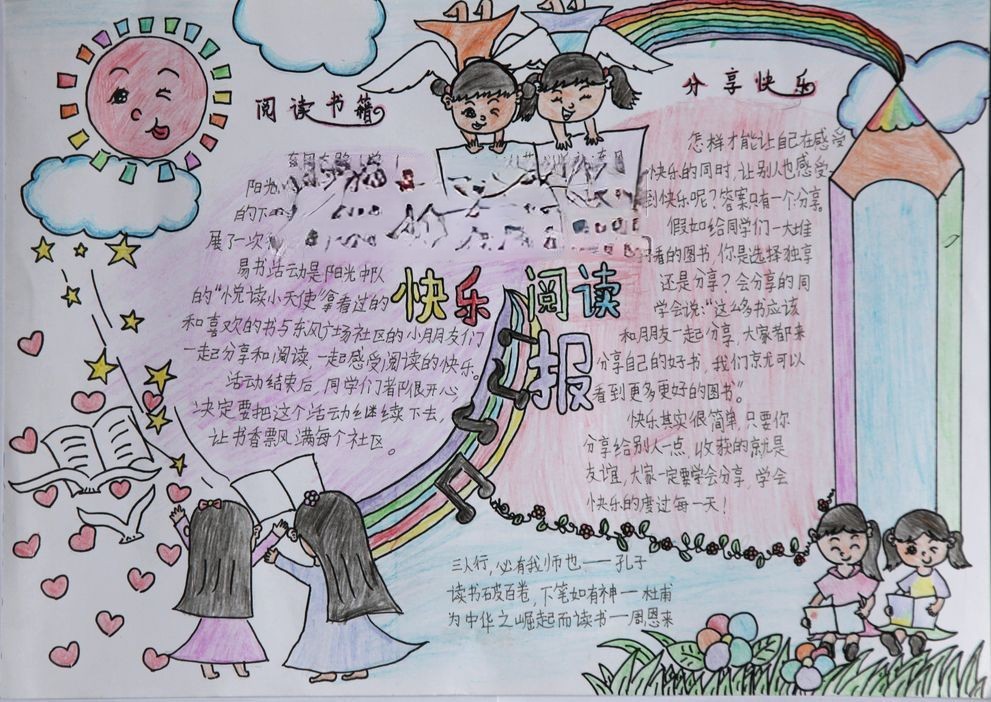 阅读书籍
阳光
的下
展了一次
易书活动是阳光中队
的“悦读小天使”拿看过的
和喜欢的书与东风广场社区的小朋友们
一起分享和阅读,一起感受阅读的快乐。
活动结束后,同学们都很开心
决定要把这个活动继续下去,
让书香票风满每个社区。
快乐 阅读
报
分享快乐
怎样才能让自己在感受
快乐的同时,让别人也感受
到快乐呢?答案只有一个分享。
假如给同学们一大堆
好看的图书,你是选择独享
还是分享?会分享的同
学会说:“这么多书应该
和朋友一起分享,大家都来
分享自己的好书,我们京尤可以
看到更多更好的图书”。
快乐其实很简单,只要你
分享给别人一点,收获的就是
友谊,大家一定要学会分享,学会
快乐的度过每一天!
三人行,必有我师也——孔子
读书破百卷,下笔如有神一杜甫
为中华之崛起而读书一周恩来